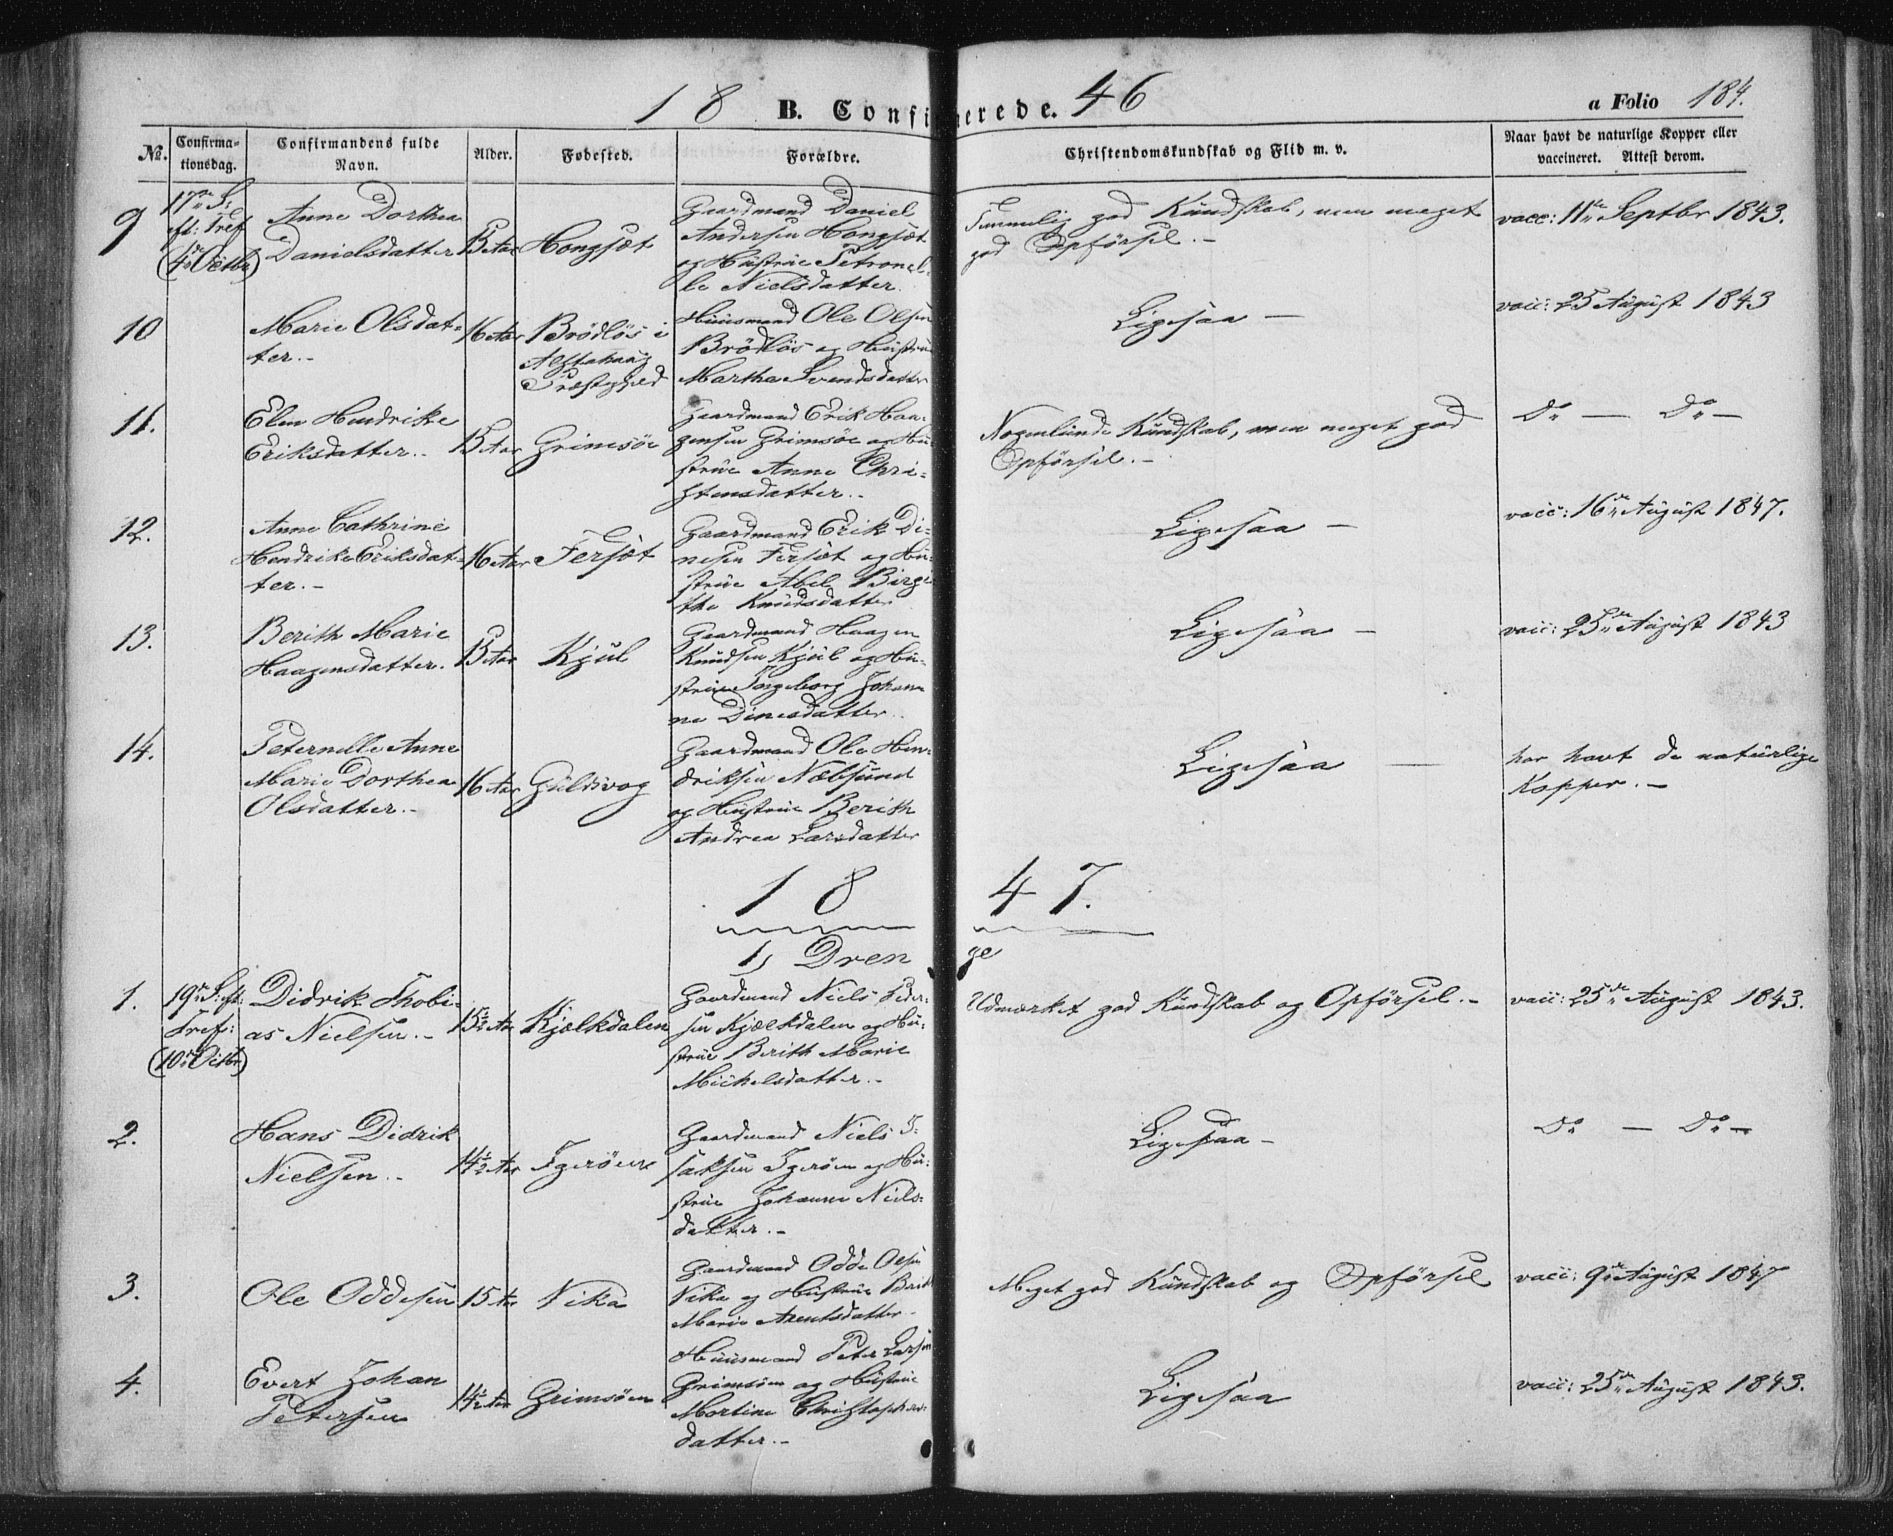 18 B. Confirmerede. 46 a Folio 184.
No. Confirmationsdag. Confirmandens fulde Navn. Alder. Fødested. Forældre. Christendomskundskab og Flid m. v. Naar havt de naturlige Kopper eller vaccineret. Attest derom.
9 17de S: eft: Tref (4de Octbr)
Anne Dorthea
Danielsdatter
15 Aar
Hongsæt
Gaardmand Daniel
Andersen Hongsæt
og Hustrue Petronel-
le Nielsdatter.
Temmelig god Kundskab, men meget
god Opførsel.-
vacc: 11te Septbr 1843.
10
Marie Olsdat-
ter.-
16 Aar
Brödlös i
Præstegjeld
Huusmand Ole Olsen
Brödlös og Hustrue
Martha Svendsdatter
Ligesaa -
vacc: 25 August 1843
11.
Elen Hendrikke
Eriksdatter.-
15 Aar
Grimsöe
Gaardmand Erik Haa-
gensen Grimsöe og Hu-
strue Anne Chri-
stensdatter.-
Nogenlunde Kundskab, men meget god
Opførsel.-
Do - Do -
12.
Anne Cathrine
Hendrike Eriksdat-
ter.-
16 Aar
Fersæt
Gaardmand Erik Di-
nesen Fersæt og Hu-
strue Abel Birgi
the Knudsdatter
Ligesaa -
vacc: 16de August 1847.
13.
Berith Marie
Haagensdatter.
15 Aar
Kjul
Gaardmand Haagen
Knudsen Kjul og Hu-
strue Ingeborg Johan
ne Dinesdatter.
Ligesaa -
vacc: 25de August 1843
14.
Peternelle Anne
Marie Dorthea
Olsdatter.-
16 Aar
Guldvog
Gaardmand Ole Hen-
driksen Næbsund
og Hustrue Berith
Andrea Larsdatter
Ligesaa -
har havt de naturlige
Kopper.-
18 47.
1) Drenge
1.
19de S: eft:
Tref:
(10de Octbr)
Didrik Thobi-
as Nielsen.-
15½ Aar
Kjælkdalen
Gaardmand Niels Peder-
sen Kjælkdalen og Hu-
strue Berith Marie
Michelsdatter.-
Udmærket god Kundskab og Opførsel.-
vacc: 25de August 1843.
2.
Hans Didrik
Nielsen.-
14½ Aar
Igeröen
Gaardmand Niels I-
saksen Igeröen og Hu-
strue Johanne Niels-
datter.-
Ligesaa -
Do - Do -
3.
Ole Oddesen
15 Aar
Vika
Gaardmand Odde Olsen
Vika og Hustrue Berith
Marie Arentsdatter.
Meget god Kundskab og Opførsel
vacc: 9de August 1847
4.
Evert Johan
Petersen
14½ Aar
Grimsöen
Huusmand Peter Larsen
Grimsöen og Hustrue
Martine Christophers-
datter.-
Ligesaa
vacc: 25de August 1843.